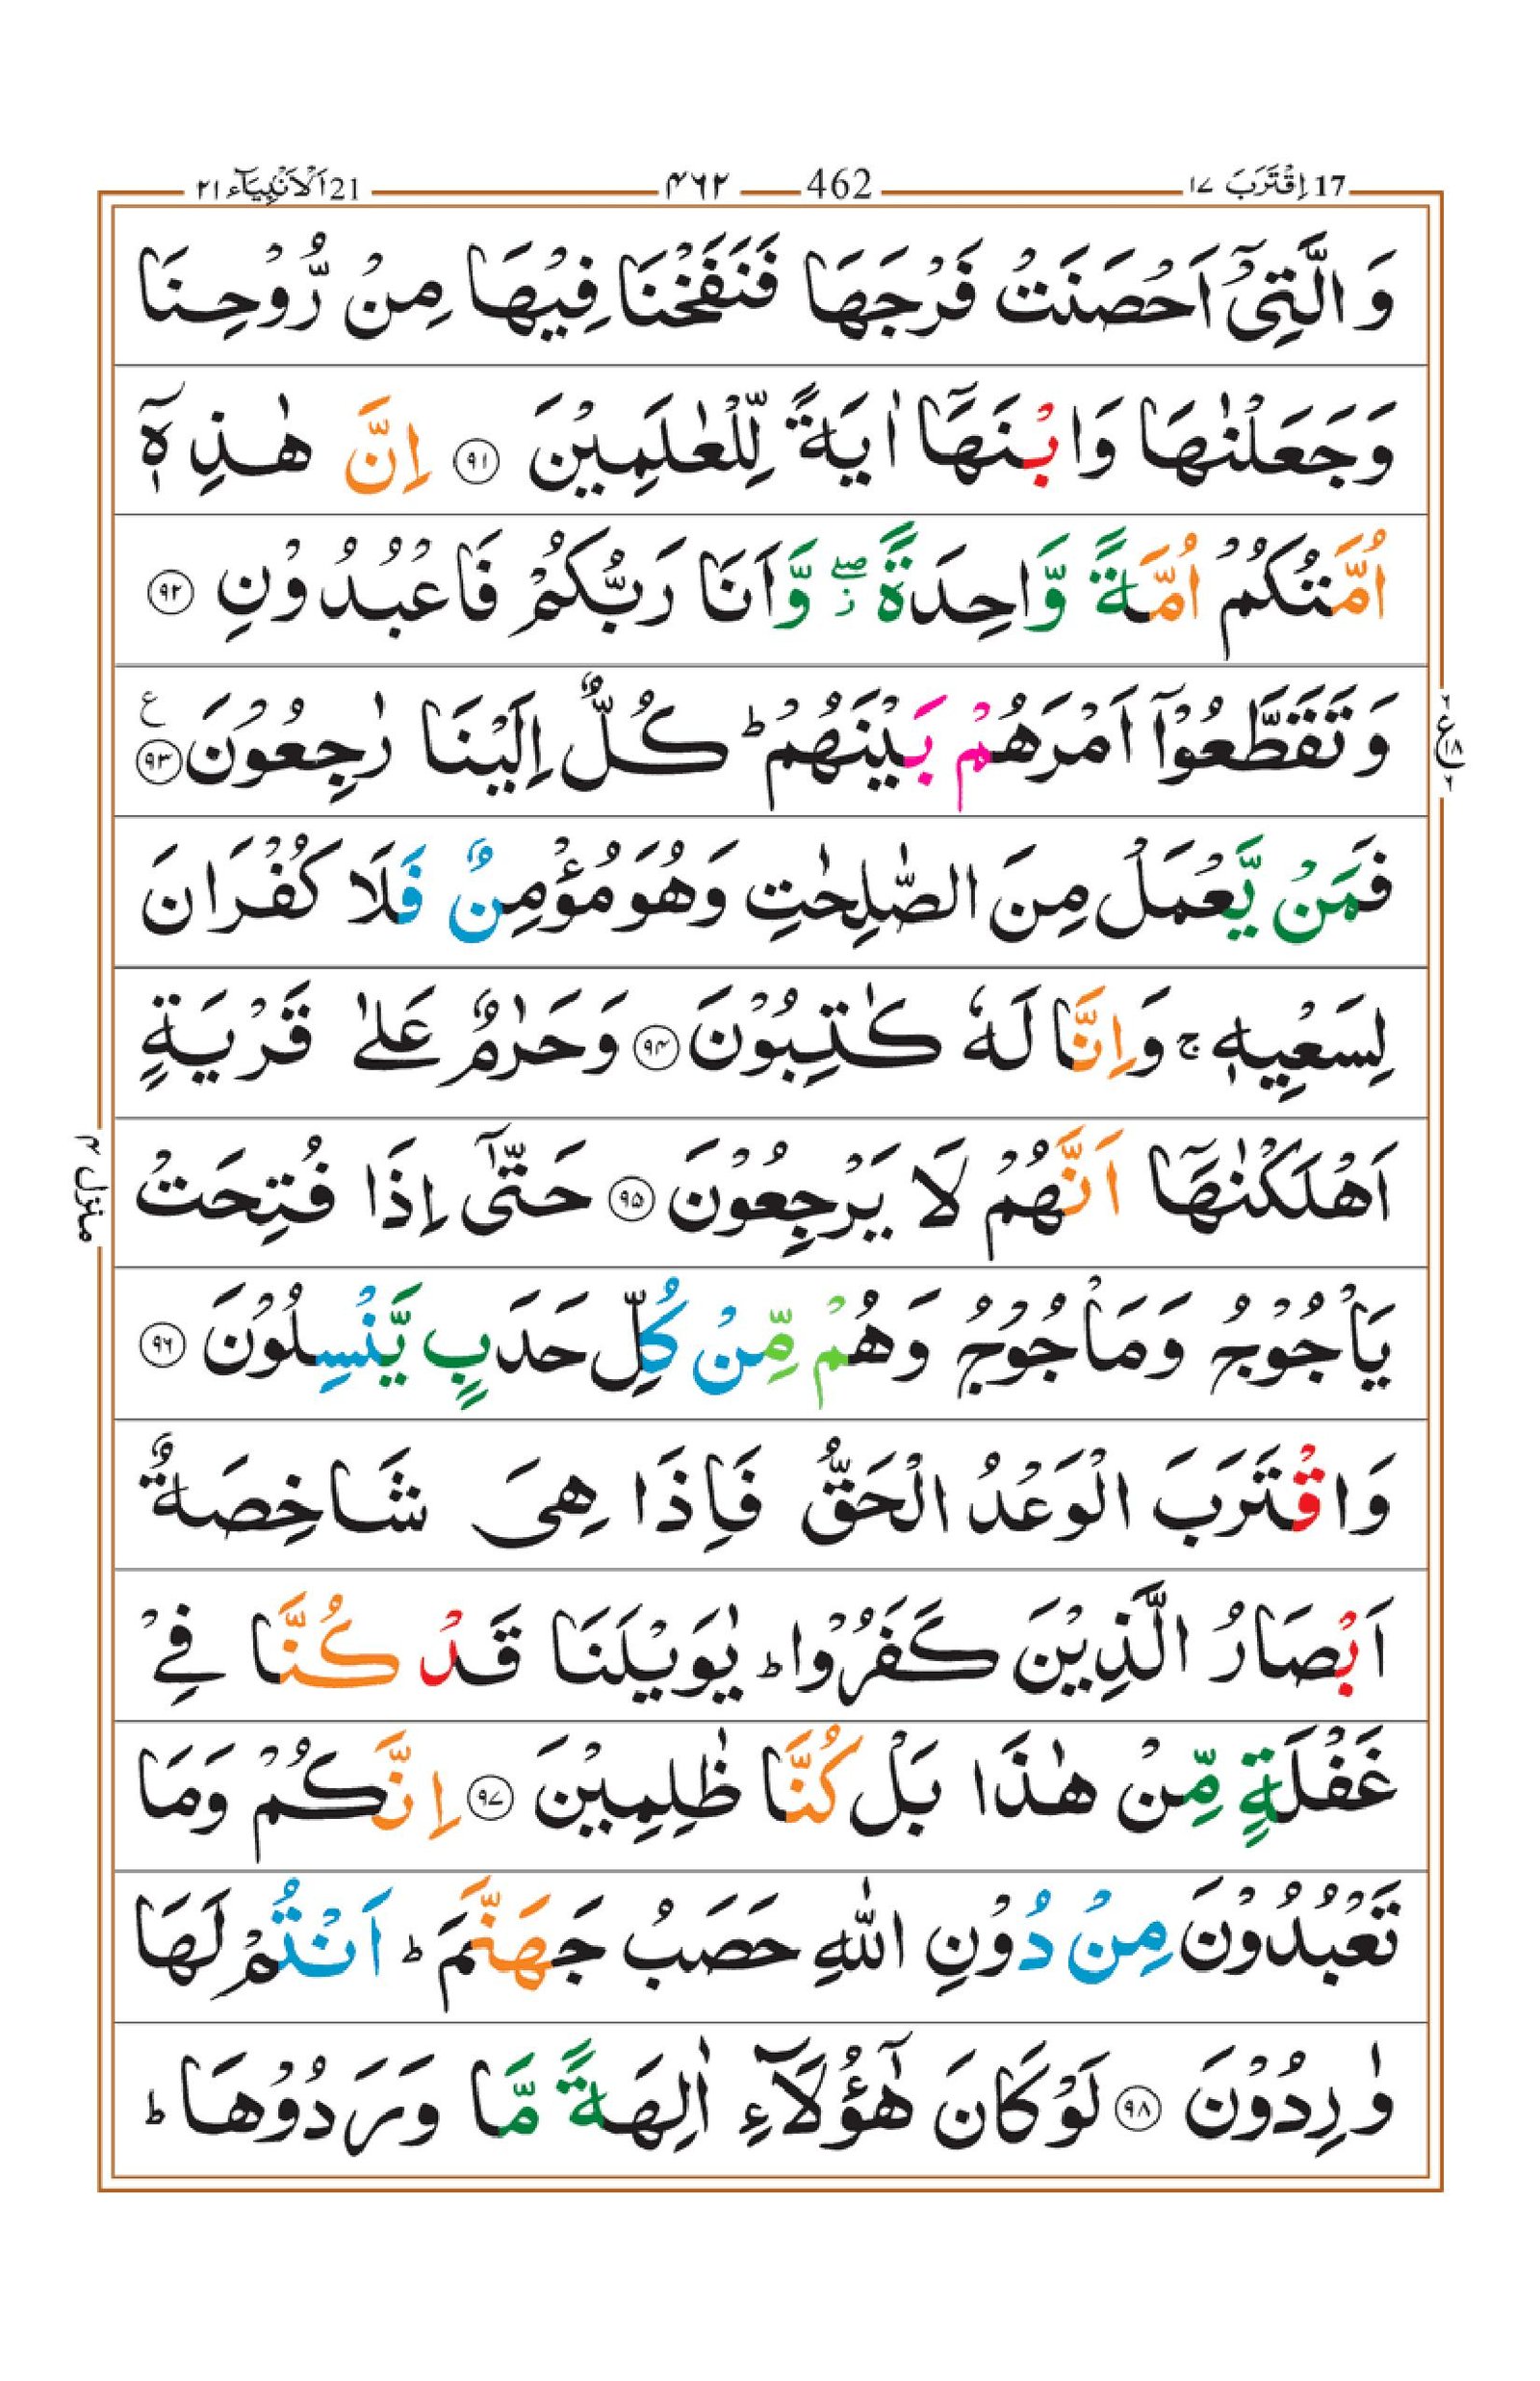 17 اِقْتَرَبَ ١٧ 462 ۴۶۲ 21 اَلْاَنْۢبِيَآء ٢١
وَ الَّتِیْۤ اَحْصَنَتْ فَرْجَهَا فَنَفَخْنَا فِیْهَا مِنْ رُّوْحِنَا
وَجَعَلْنٰهَا وَابْنَهَاۤ اٰیَةً لِّلْعٰلَمِیْنَ ۹۱ اِنَّ هٰذِهٖۤ
اُمَّتُكُمْ اُمَّةً وَّاحِدَةً ۖؗ وَّاَنَا رَبُّكُمْ فَاعْبُدُوْنِ ۹۲
وَتَقَطَّعُوْۤا اَمْرَهُمْ بَیْنَهُمْ ؕ كُلٌّ اِلَیْنَا رٰجِعُوْنَ ۹۳ ع
٢ ع ١٨ ٦
فَمَنْ یَّعْمَلْ مِنَ الصّٰلِحٰتِ وَهُوَ مُؤْمِنٌ فَلَا كُفْرَانَ
لِسَعْیِهٖ ۚ وَاِنَّا لَهٗ كٰتِبُوْنَ ۹۴ وَحَرٰمٌ عَلٰی قَرْیَةٍ
اَهْلَكْنٰهَاۤ اَنَّهُمْ لَا یَرْجِعُوْنَ ۹۵ حَتّٰۤی اِذَا فُتِحَتْ
منزل ۴
یَاْجُوْجُ وَمَاْجُوْجُ وَهُمْ مِّنْ كُلِّ حَدَبٍ یَّنْسِلُوْنَ ۹۶
وَاقْتَرَبَ الْوَعْدُ الْحَقُّ فَاِذَا هِیَ شَاخِصَةٌ
اَبْصَارُ الَّذِیْنَ كَفَرُوْا ؕ یٰوَیْلَنَا قَدْ كُنَّا فِیْ
غَفْلَةٍ مِّنْ هٰذَا بَلْ كُنَّا ظٰلِمِیْنَ ۹۷ اِنَّكُمْ وَمَا
تَعْبُدُوْنَ مِنْ دُوْنِ اللّٰهِ حَصَبُ جَهَنَّمَ ؕ اَنْتُمْ لَهَا
وٰرِدُوْنَ ۹۸ لَوْ كَانَ هٰۤؤُلَآءِ اٰلِهَةً مَّا وَرَدُوْهَا ؕ